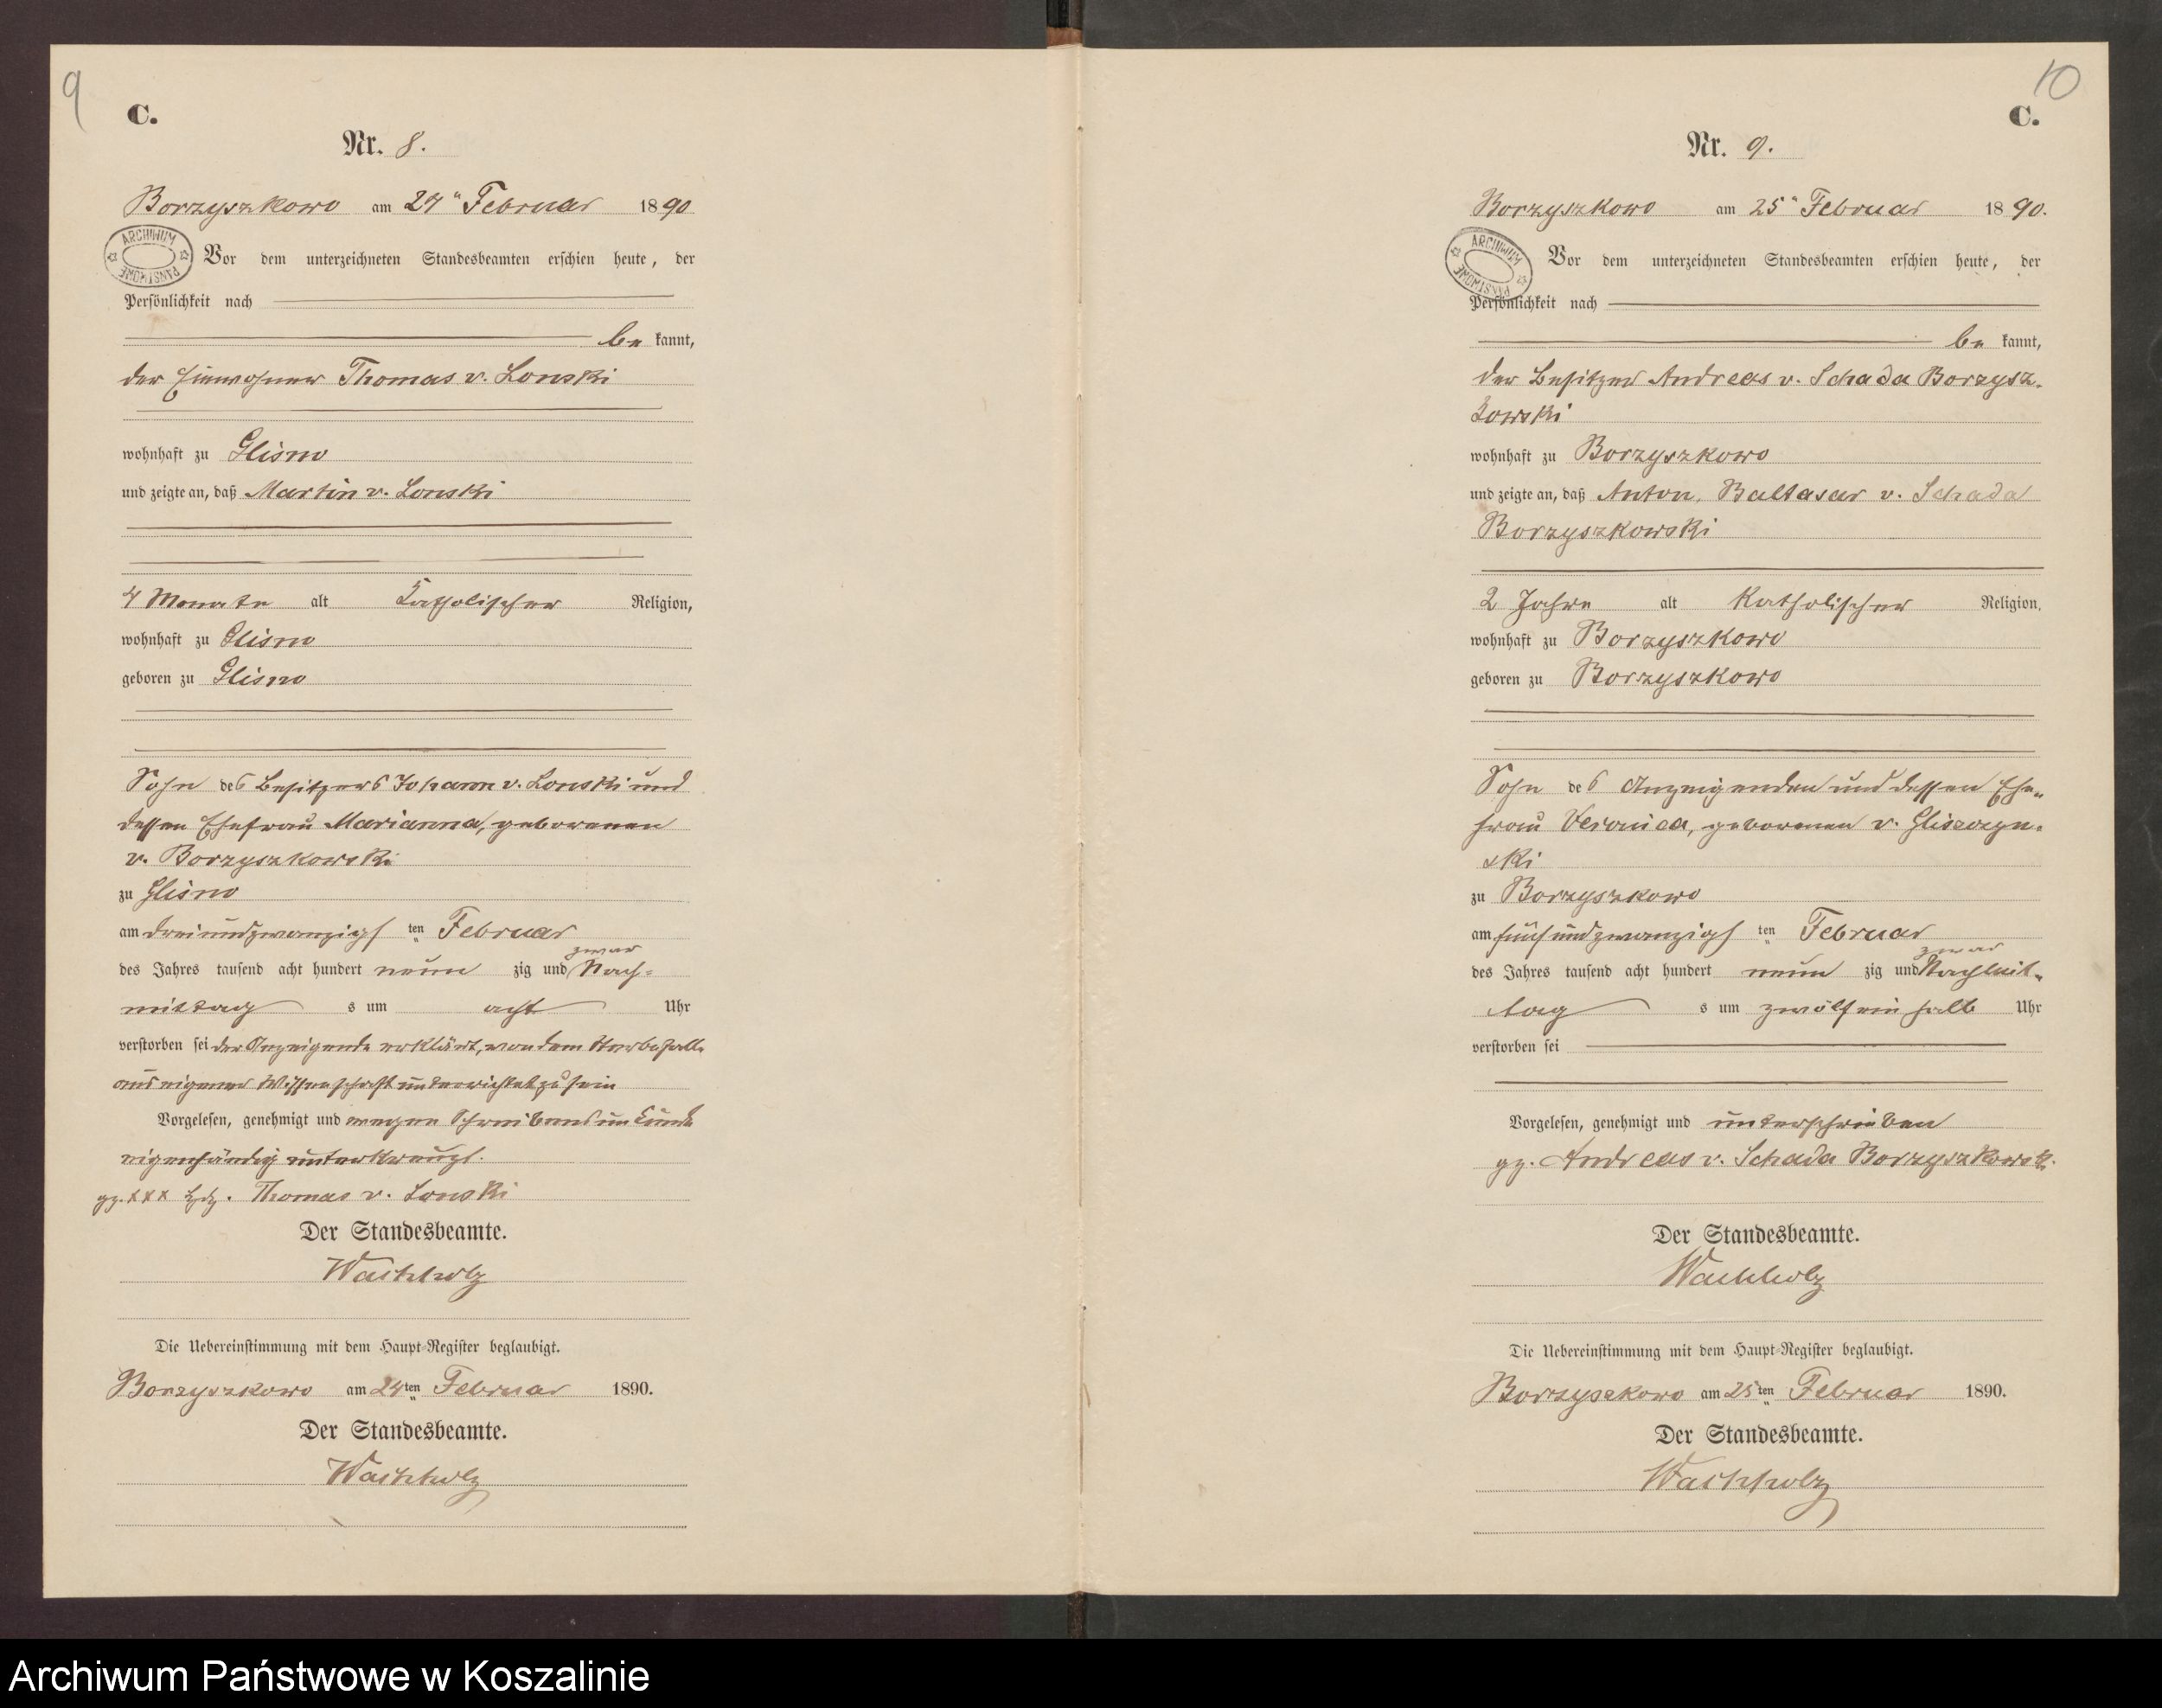 9
C.
Nr. 8.
Borzyszkowo am 24" Februar 1890
ARCHIWUM PAŃSTWOWE
Vor dem unterzeichneten Standesbeamten erschien heute, der
Persönlichkeit nach
be kannt,
der Einwohner Thomas v. Lonski
wohnhaft zu Glisno
und zeigte an, daß Martin v. Lonski
4 Monate alt katholischer Religion,
wohnhaft zu Glisno
geboren zu Glisno
Sohn des Besitzers Johann v. Lonski und
dessen Ehefrau Marianna, geborenen
v. Borzyszkowski
zu Glisno
am dreiundzwanzigsten Februar
zwar
des Jahres tausend acht hundert neun zig und Nach-
mittag s um acht Uhr
verstorben sei der Anzeigende erklärt, von dem Sterbefalle
aus eigener Wissenschaft unterrichtet zu sein
Vorgelesen, genehmigt und wegen Schreibensunkunde
eigenhändig unterkreuzt.
gz. xxx Hdz. Thomas v. Lonski
Der Standesbeamte.
Wachholz
Die Uebereinstimmung mit dem Haupt-Register beglaubigt.
Borzyszkowo am 24ten Februar 1890.
Der Standesbeamte.
Wachholz
10
C.
Nr. 9.
Borzyszkowo am 25" Februar 1890.
ARCHIWUM PAŃSTWOWE
Vor dem unterzeichneten Standesbeamten erschien heute, der
Persönlichkeit nach
be kannt,
der Besitzer Andreas v. Schada Borzysz-
kowski
wohnhaft zu Borzyszkowo
und zeigte an, daß Anton, Baltasar v. Schada
Borzyszkowski
2 Jahre alt katholischer Religion,
wohnhaft zu Borzyszkowo
geboren zu Borzyszkowo
Sohn des Anzeigenden und dessen Ehe-
frau Veronica, geborenen v. Gliszczyn-
ski
zu Borzyszkowo
am fünfundzwanzigsten Februar
zwar
des Jahres tausend acht hundert neun zig und Nachmit-
tag s um zwölfeinhalb Uhr
verstorben sei
Vorgelesen, genehmigt und unterschrieben
gz. Andreas v. Schada Borzyszkowski.
Der Standesbeamte.
Wachholz
Die Uebereinstimmung mit dem Haupt-Register beglaubigt.
Borzyszkowo am 25ten Februar 1890.
Der Standesbeamte.
Wachholz
Archiwum Państwowe w Koszalinie